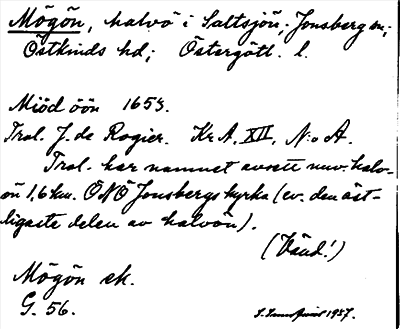 Mögön, halvö i Saltsjön; Jonsberg sn;
Östkinds hd; Östergötl. l.
Miöd öön 1653.
Trol. J. de Rogier. Kr A, XII, N:o A.
Trol. har namnet avsett nuv. halv-
ön 1,6 km. ÖNÖ Jonsbergs kyrka (ev. den öst-
ligaste delen av halvön).
(Vänd!)
Mögön ek.
G. 56.
1937.